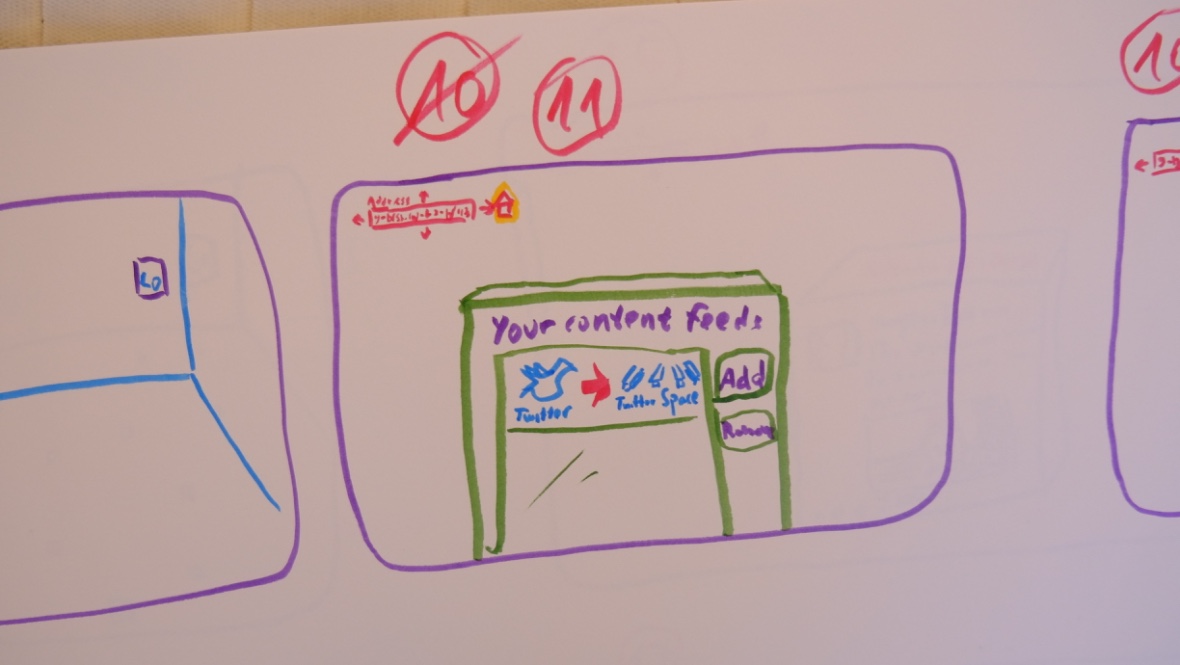 10
11
10
Address
LO
Your content Feeds
Add
Twitter
Twitter Space
Remove